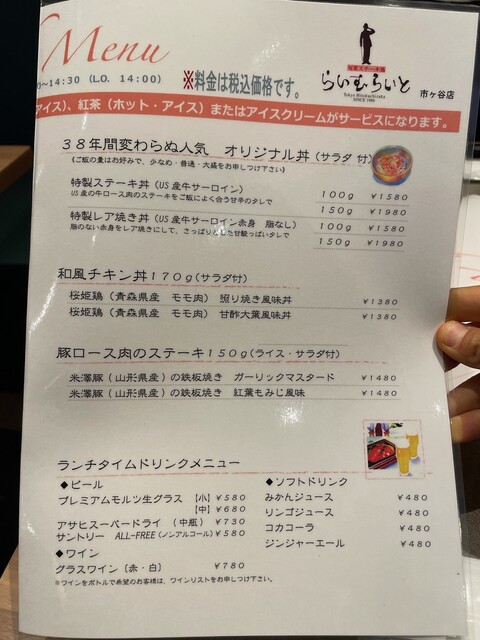 Menu
~14:30 (L.O. 14:00)
※料金は税込価格です。
らいむらいと
Tokyo Hitotsubashi
SINCE 1980
市ヶ谷店
アイス)、紅茶(ホット・アイス)またはアイスクリームがサービスになります。
38年間変わらぬ人気 オリジナル丼(サラダ 付)
(ご飯の量はお好みで、少なめ・普通・大盛をお申しつけ下さい)
特製ステーキ丼(US産牛サーロイン) 100g ¥1580
US産の牛ロース肉のステーキをご飯によく合う甘辛のタレで 150g ¥1980
特製レア焼き丼(US産牛サーロイン赤身 脂なし) 100g ¥1580
脂のない赤身をレア焼きにして、さっぱりとした甘酸っぱいタレで 150g ¥1980
和風チキン丼170g(サラダ付)
桜姫鶏(青森県産 モモ肉) 照り焼き風味丼 ¥1380
桜姫鶏(青森県産 モモ肉) 甘酢大葉風味丼 ¥1380
豚ロース肉のステーキ150g(ライス・サラダ付)
米澤豚(山形県産)の鉄板焼き ガーリックマスタード ¥1480
米澤豚(山形県産)の鉄板焼き 紅葉もみじ風味 ¥1480
ランチタイムドリンクメニュー
◆ビール
プレミアムモルツ生グラス [小] ¥580
[中] ¥680
アサヒスーパードライ (中瓶) ¥730
サントリー ALL-FREE(ノンアルコール) ¥580
◆ワイン
グラスワイン(赤・白) ¥780
※ワインをボトルで希望のお客様は、ワインリストをお申しつけ下さい。
◆ソフトドリンク
みかんジュース ¥480
リンゴジュース ¥480
コカコーラ ¥480
ジンジャーエール ¥480